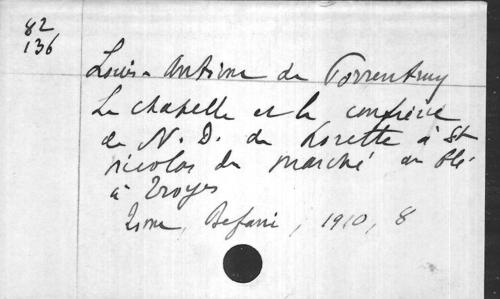 82
136
Louis-Antoine de Porrentruy
La chapelle et la confrérie
de N. D. de Lorette à St
Nicolas du marché au blé
à Troyes
Befani, 1910, 8